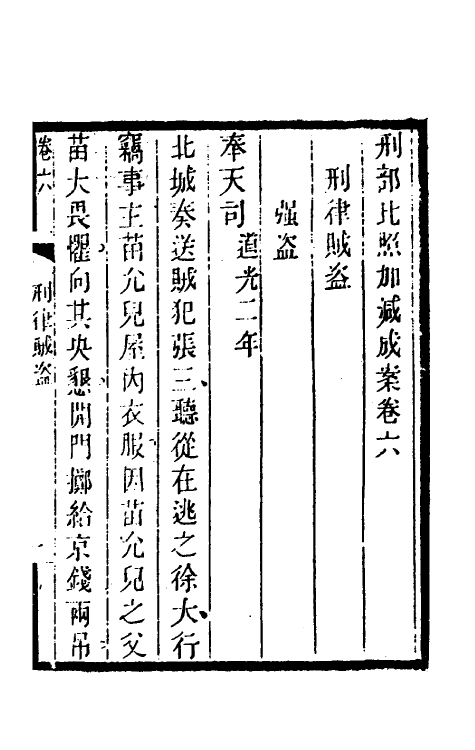 刑部比照加減成案卷六
刑律賊盜
強盜
奉天司 道光二年
北城奏送賊犯張三聽從在逃之徐大行
竊事主苗允兒屋內衣服因苗允兒之父
苗大畏懼向其央懇開門擲給京錢兩吊
卷六 刑律賊盜 一